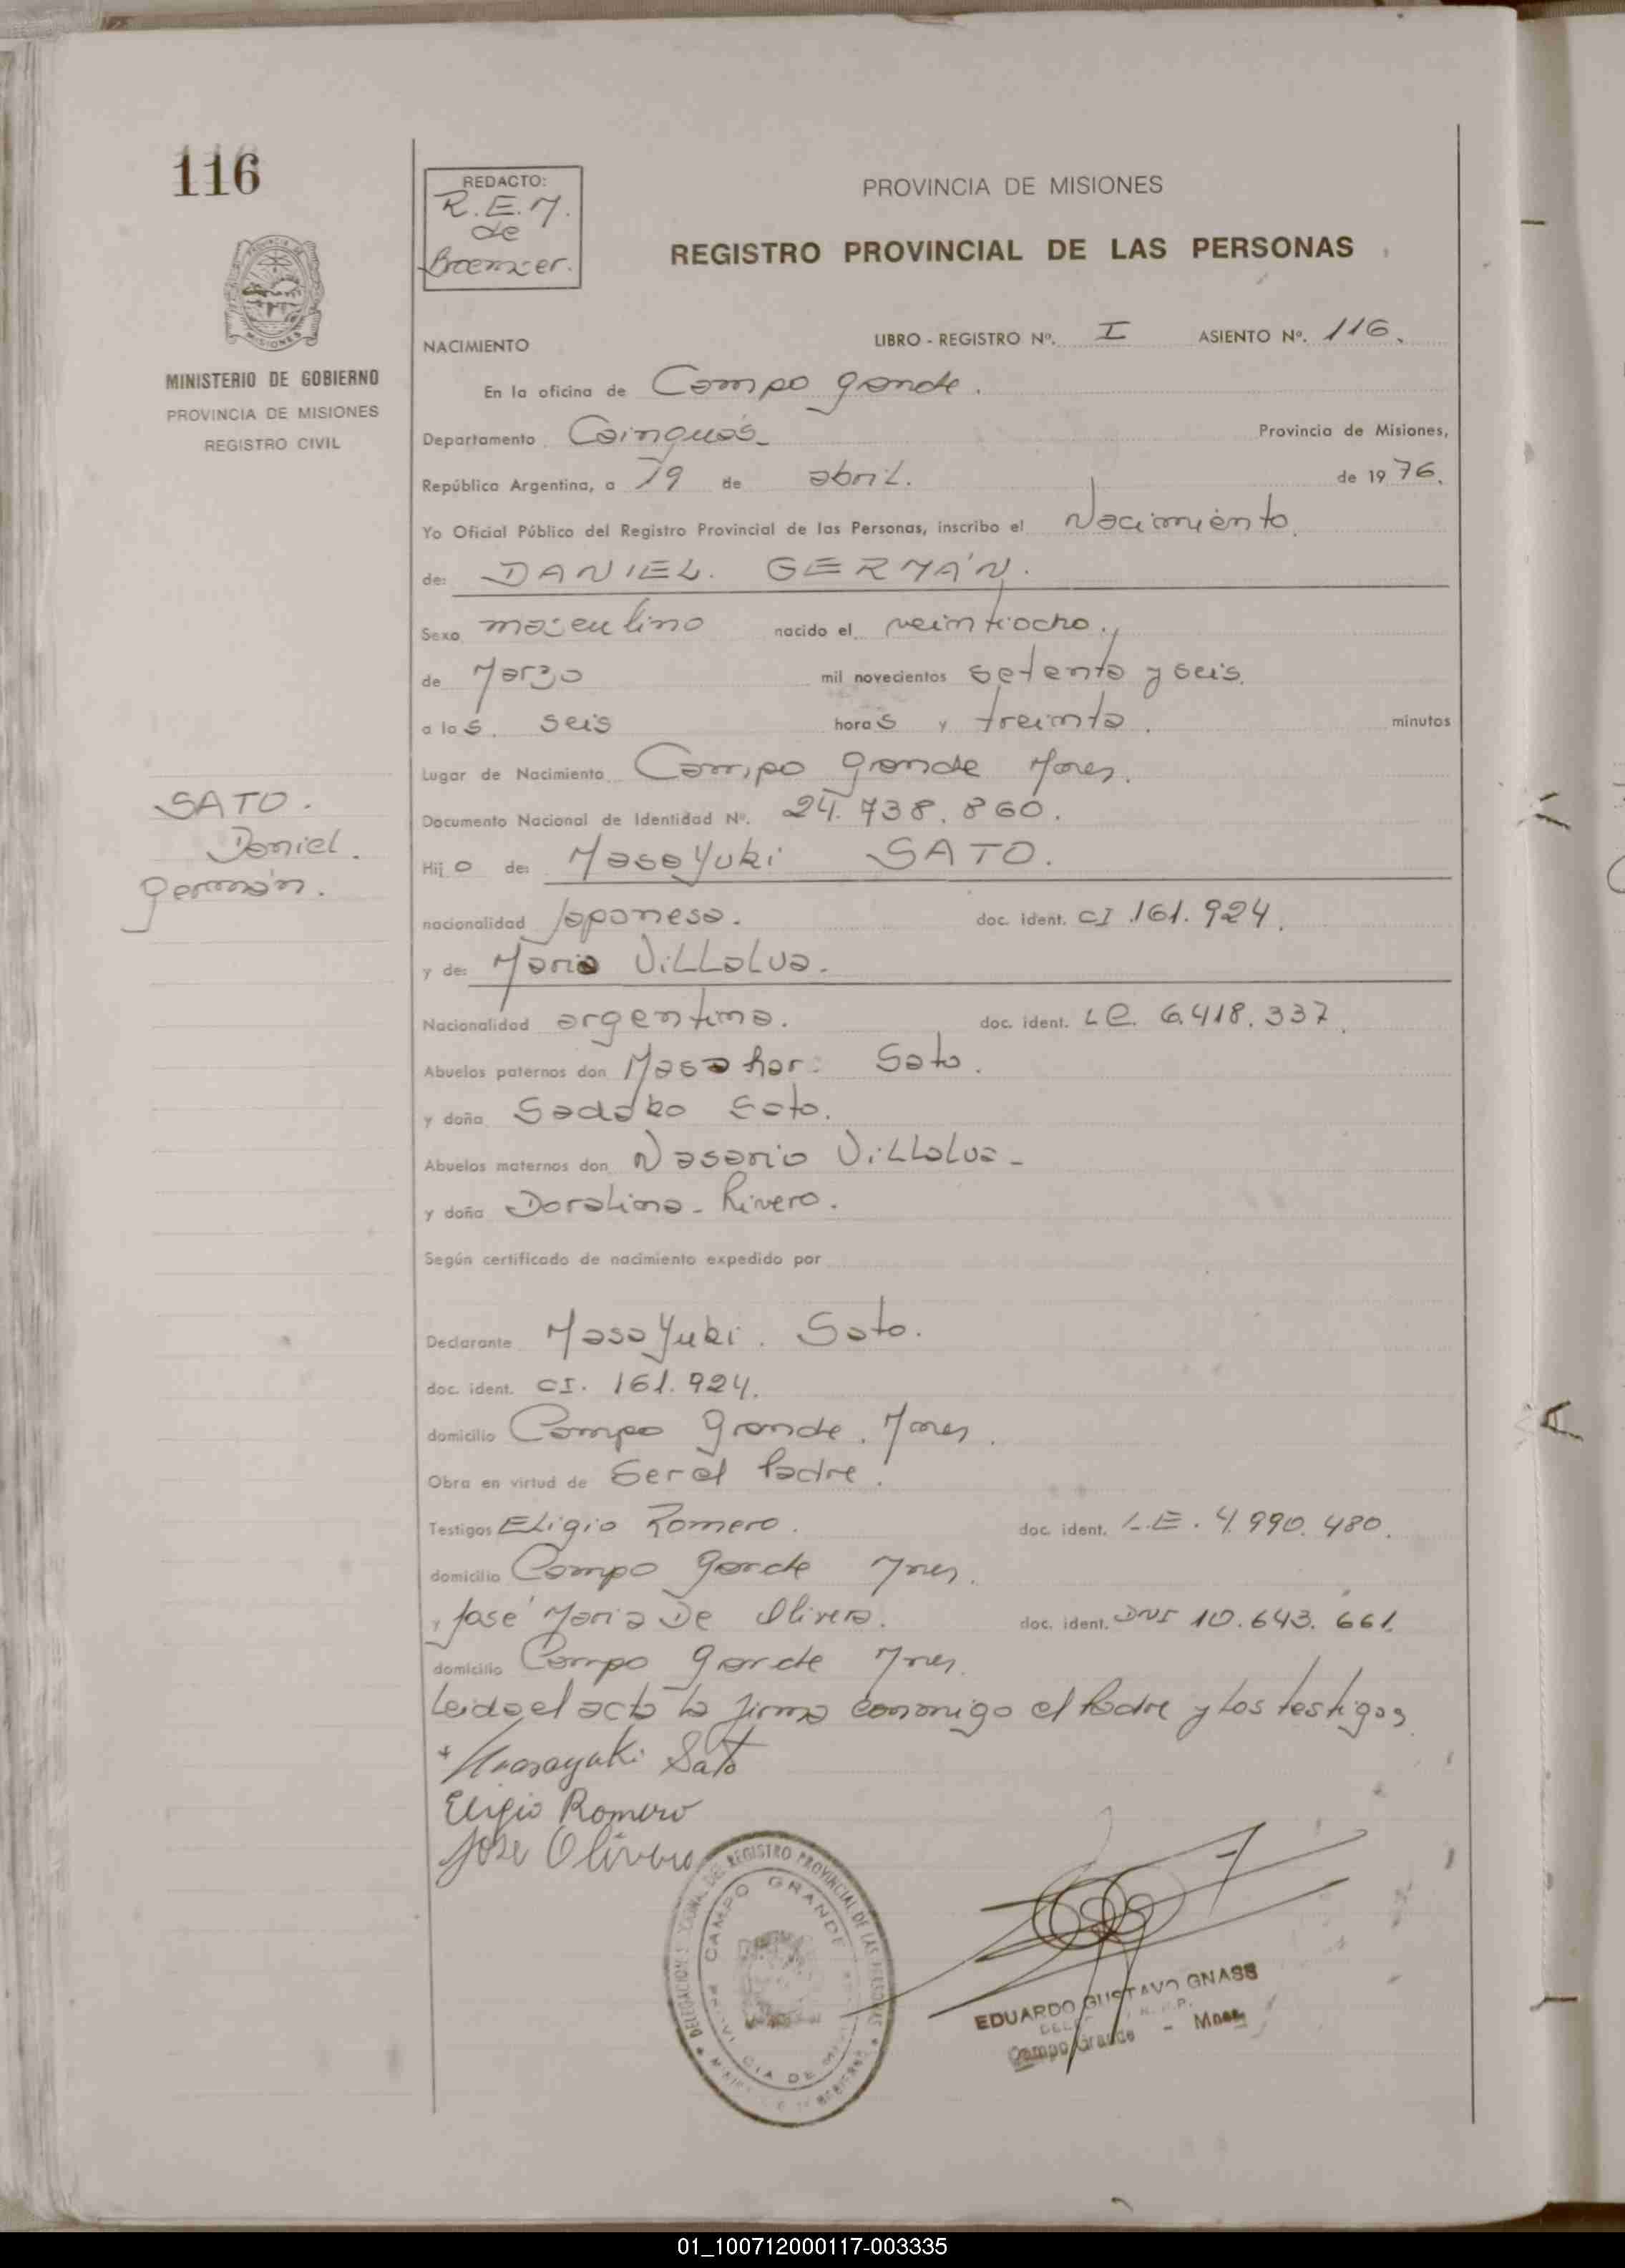 116
REDACTO:
R.E.M.
de
Broemser.
PROVINCIA DE MISIONES
REGISTRO PROVINCIAL DE LAS PERSONAS
MINISTERIO DE GOBIERNO
PROVINCIA DE MISIONES
REGISTRO CIVIL
NACIMIENTO LIBRO - REGISTRO Nº. I ASIENTO Nº. 116.
En la oficina de Campo grande.
Departamento Cainguás Provincia de Misiones,
República Argentina, a 19 de abril. de 1976.
Yo Oficial Público del Registro Provincial de las Personas, inscribo el Nacimiento.
de: DANIEL. GERMÁN.
Sexo masculino nacido el veintiocho.,
de Marzo mil novecientos setenta y seis.
a las. seis horas y treinta. minutos
Lugar de Nacimiento Campo grande Mnes.
Documento Nacional de Identidad Nº. 24.738.860.
SATO.
Daniel.
germán.
Hijo de: Masayuki SATO.
nacionalidad Japonesa. doc. ident. CI.161.924.
y de: Maria Villalva.
Nacionalidad argentina. doc. ident. LC. 6.418.337.
Abuelos paternos don Masahar: Sato.
y doña Sadako Sato.
Abuelos maternos don Nasario Villalva-
y doña Doralina- Rivero.
Según certificado de nacimiento expedido por
Declarante Masayuki. Sato.
doc. ident. CI. 161.924.
domicilio Campo Grande. Mnes.
Obra en virtud de Ser el Padre.
Testigos Eligio Romero. doc. ident. L.E. 4.990.480.
domicilio Campo garde Mnes.
y José Maria De Olivera. doc. ident. DNI 10.643.661.
domicilio Campo garde Mnes.
Leida el acta la firma conmigo el Padre y los testigos
+ Masayuki Sato
Eligio Romero
Jose Olivera
DELEGACION DEL REGISTRO PROVINCIAL DE LAS PERSONAS
CAMPO GRANDE
EDUARDO GUSTAVO GNASS
Campo Grande - Mnes.
01_100712000117-003335